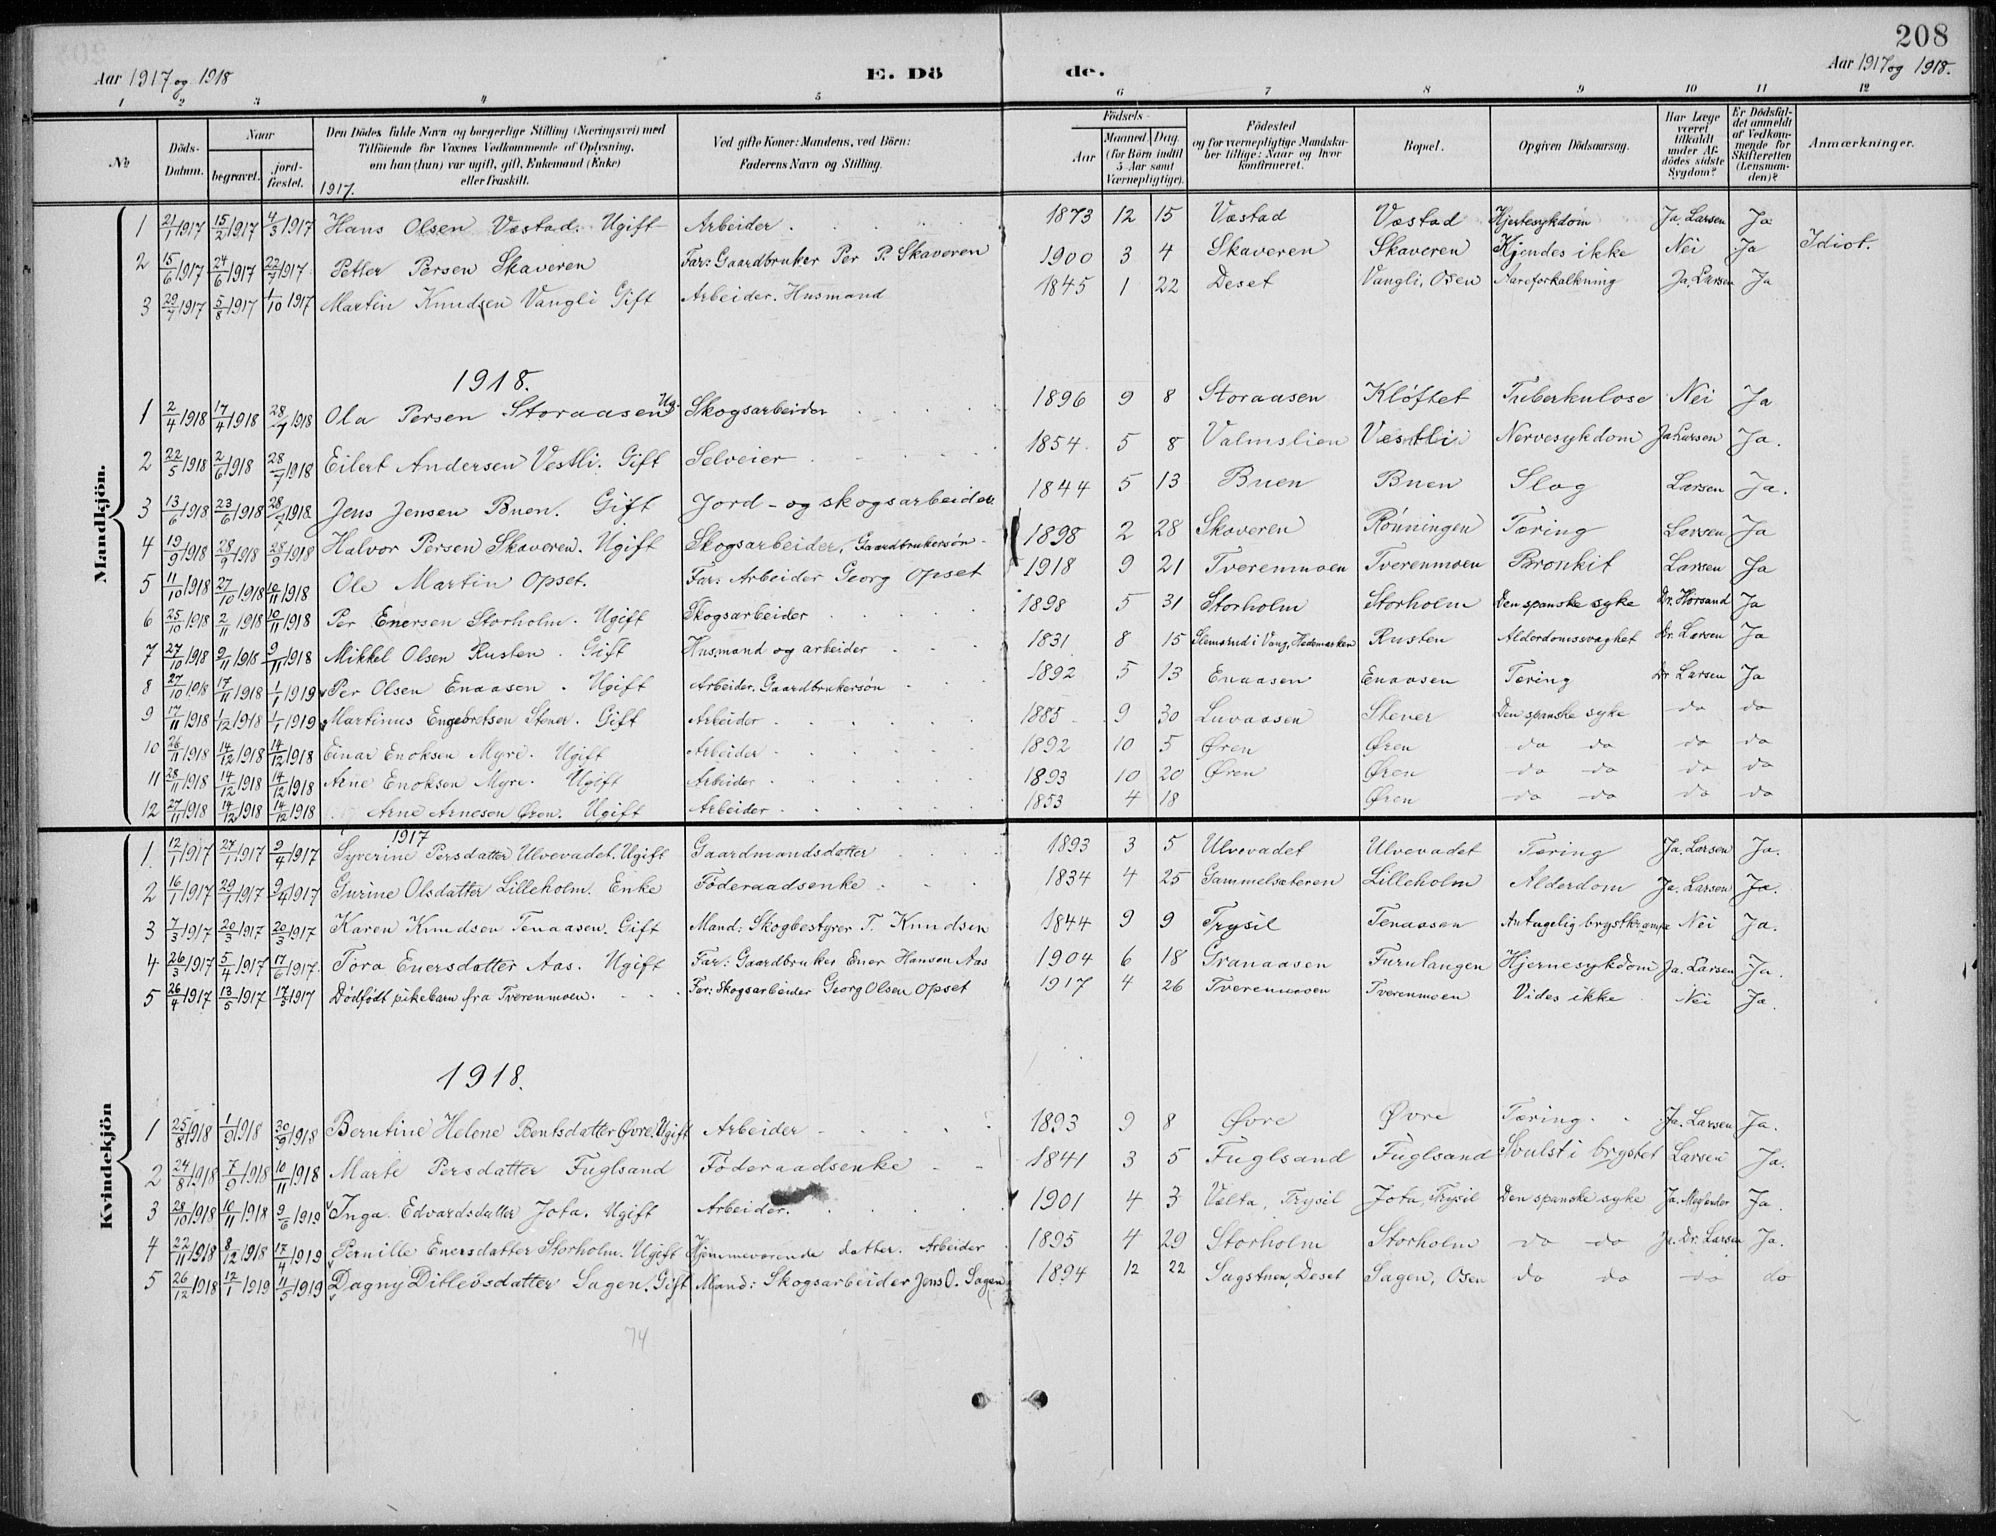 208
Aar 1917 og 1918
E. Dö
de.
Aar 1917 og 1918.
1 2 3 4 5 6 7 8 9 10 11 12
No Döds-Datum. Naar begravet. jord-fæstet. Den Dödes fulde Navn og borgerlige Stilling (Næringsvei) med Tilföiende for Voxnes Vedkommende af Oplysning, om han (hun) var ugift, gift, Enkemand (Enke) eller fraskilt. Ved gifte Koner: Mandens, ved Börn: Faderens Navn og Stilling. Födsels- Aar Maaned Dag (for Börn indtil 5 Aar samt Værnepligtige). Födested og for værnepligtige Mandskaber tillige: Naar og hvor konfirmeret. Bopæl. Opgiven Dödsaarsag. Har Læge været tilkaldt under Afdödes sidste Sygdom? Er Dödsfaldet anmeldt af Vedkommende for Skifteretten (Lensmanden)? Anmærkninger.
1917.
Mandkjön.
1 21/1 1917 15/2 1917 4/3 1917 Hans Olsen Væstad. Ugift Arbeider 1873 12 15 Væstad Væstad Hjertesykdom Ja. Larsen Ja
2 15/6 1917 24/6 1917 22/7 1917 Petter Persen Skaveren Far: Gaardbruker Per P. Skaveren 1900 3 4 Skaveren Skaveren Kjendes ikke Nei Ja Idiot.
3 29/7 1917 5/8 1917 1/10 1917 Martin Knudsen Vangli Gift Arbeider. Husmand 1845 1 22 Deset Vangli, Osen Aareforkalkning Ja, Larsen Ja
1918.
1 2/4 1918 17/4 1918 28/7 1918 Ola Persen Storaasen Ug. Skogsarbeider 1896 9 8 Storaasen Kløftet Tuberkulose Nei Ja
2 22/5 1918 2/6 1918 28/7 1918 Eilert Andersen Vestli. Gift Selveier 1854 5 8 Valmslien Vestli Nervesykdom Ja Larsen Ja.
3 13/6 1918 23/6 1918 28/7 1918 Jens Jensen Buen. Gift Jord- og skogsarbeider 1844 5 13 Buen Buen Slag Larsen Ja.
4 19/9 1918 28/9 1918 28/9 1918 Halvor Persen Skaveren. Ugift Skogsarbeider, Gaardbrukersøn 1898 2 28 Skaveren Rønningen Tæring Larsen Ja
5 11/10 1918 27/10 1918 10/11 1918 Ole Martin Opset. Far: Arbeider Georg Opset 1918 9 21 Tverenmoen Tverenmoen Bronkit Larsen Ja
6 25/10 1918 2/11 1918 10/11 1918 Per Enersen Storholm. Ugift Skogsarbeider 1898 5 31 Storholm Storholm Den spanske syke Dr. Horsand Ja
7 27/10 1918 9/11 1918 9/11 1918 Mikkel Olsen Rusten. Gift Husmand og arbeider 1831 8 15 Slemsrud i Vang, Hedemarken Rusten Alderdomssvaghet Dr. Larsen Ja
8 27/10 1918 17/11 1918 1/1 1919 Per Olsen Enaasen. Ugift Arbeider. Gaardbrukersøn 1892 5 13 Enaasen Enaasen Tæring Dr Larsen Ja
9 17/11 1918 1/12 1918 1/1 1919 Martinus Engebretsen Stener. Gift Arbeider 1885 9 30 Luvaasen Stener Den spanske syke do do
10 26/11 1918 14/12 1918 14/12 1918 Einar Enoksen Myre. Ugift Arbeider 1892 10 5 Øren Øren do do do do
11 28/11 1918 14/12 1918 14/12 1918 Arne Enoksen Myre. Ugift Arbeider 1893 10 20 Øren Øren do do do do
12 27/11 1918 14/12 1918 14/12 1918 Arne Arnesen Øren. Ugift Arbeider 1853 4 18 Øren do do do do
Kvindekjön
1917
1. 12/1 1917 27/1 1917 9/4 1917 Syverine Persdatter Ulvevadet. Ugift Gaardmandsdatter 1893 3 5 Ulvevadet Ulvevadet Tæring Ja. Larsen Ja.
2 16/1 1917 29/1 1917 9/4 1917 Gurine Olsdatter Lilleholm. Enke Föderaadsenke 1834 4 25 Gammelsæteren Lilleholm Alderdom Ja. Larsen Ja.
3 7/3 1917 20/3 1917 20/3 1917 Karen Knudsen Tenaasen. Gift Mand: Skogbestyrer T. Knudsen 1844 9 9 Trysil Tenaasen Antagelig brystkrampe Nei Ja.
4 26/3 1917 5/4 1917 17/6 1917. Tora Enersdatter Aas. Ugift Far: Gaardbruker Ener Hansen Aas 1904 6 18 Granaasen Furutangen Hjernesykdom Ja. Larsen Ja.
5 26/4 1917 13/5 1917 17/3 1917 Dödfödt pikebarn fra Tverenmoen. Far: Skogsarbeider Georg Olsen Opset 1917 4 26 Tverenmoen Tverenmoen Vides ikke Nei Ja.
1918.
1 25/8 1918 1/9 1918 30/9 1918 Berntine Helene Berntsdatter Øvre. Ugift Arbeider 1893 9 8 Øvre Øvre Tæring. Ja. Larsen Ja.
2 24/8 1918 7/9 1918 10/11 1918 Marte Persdatter Fuglsand Föderaadsenke 1841 3 5 Fuglsand Fuglsand Svulst i brystet Larsen Ja.
3 28/10 1918 10/11 1918 9/6 1919 Inga Edvardsdatter Jota. Ugift Arbeider. 1901 4 3 Vælta, Trysil Jota, Trysil Den spanske syke Ja. Ja.
4 22/11 1918 8/12 1918 17/4 1919 Pernille Enersdatter Storholm. Ugift Hjemmeværende datter. Arbeider 1895 4 29 Storholm Storholm do do Ja. Dr. Larsen Ja.
5 26/12 1918 12/1 1919 11/5 1919 Dagny Ditlevsdatter Sagen. Gift Mand: Skogsarbeider Jens O. Sagen 1894 12 22 Sagstuen, Deset Sagen, Osen do do do do
74